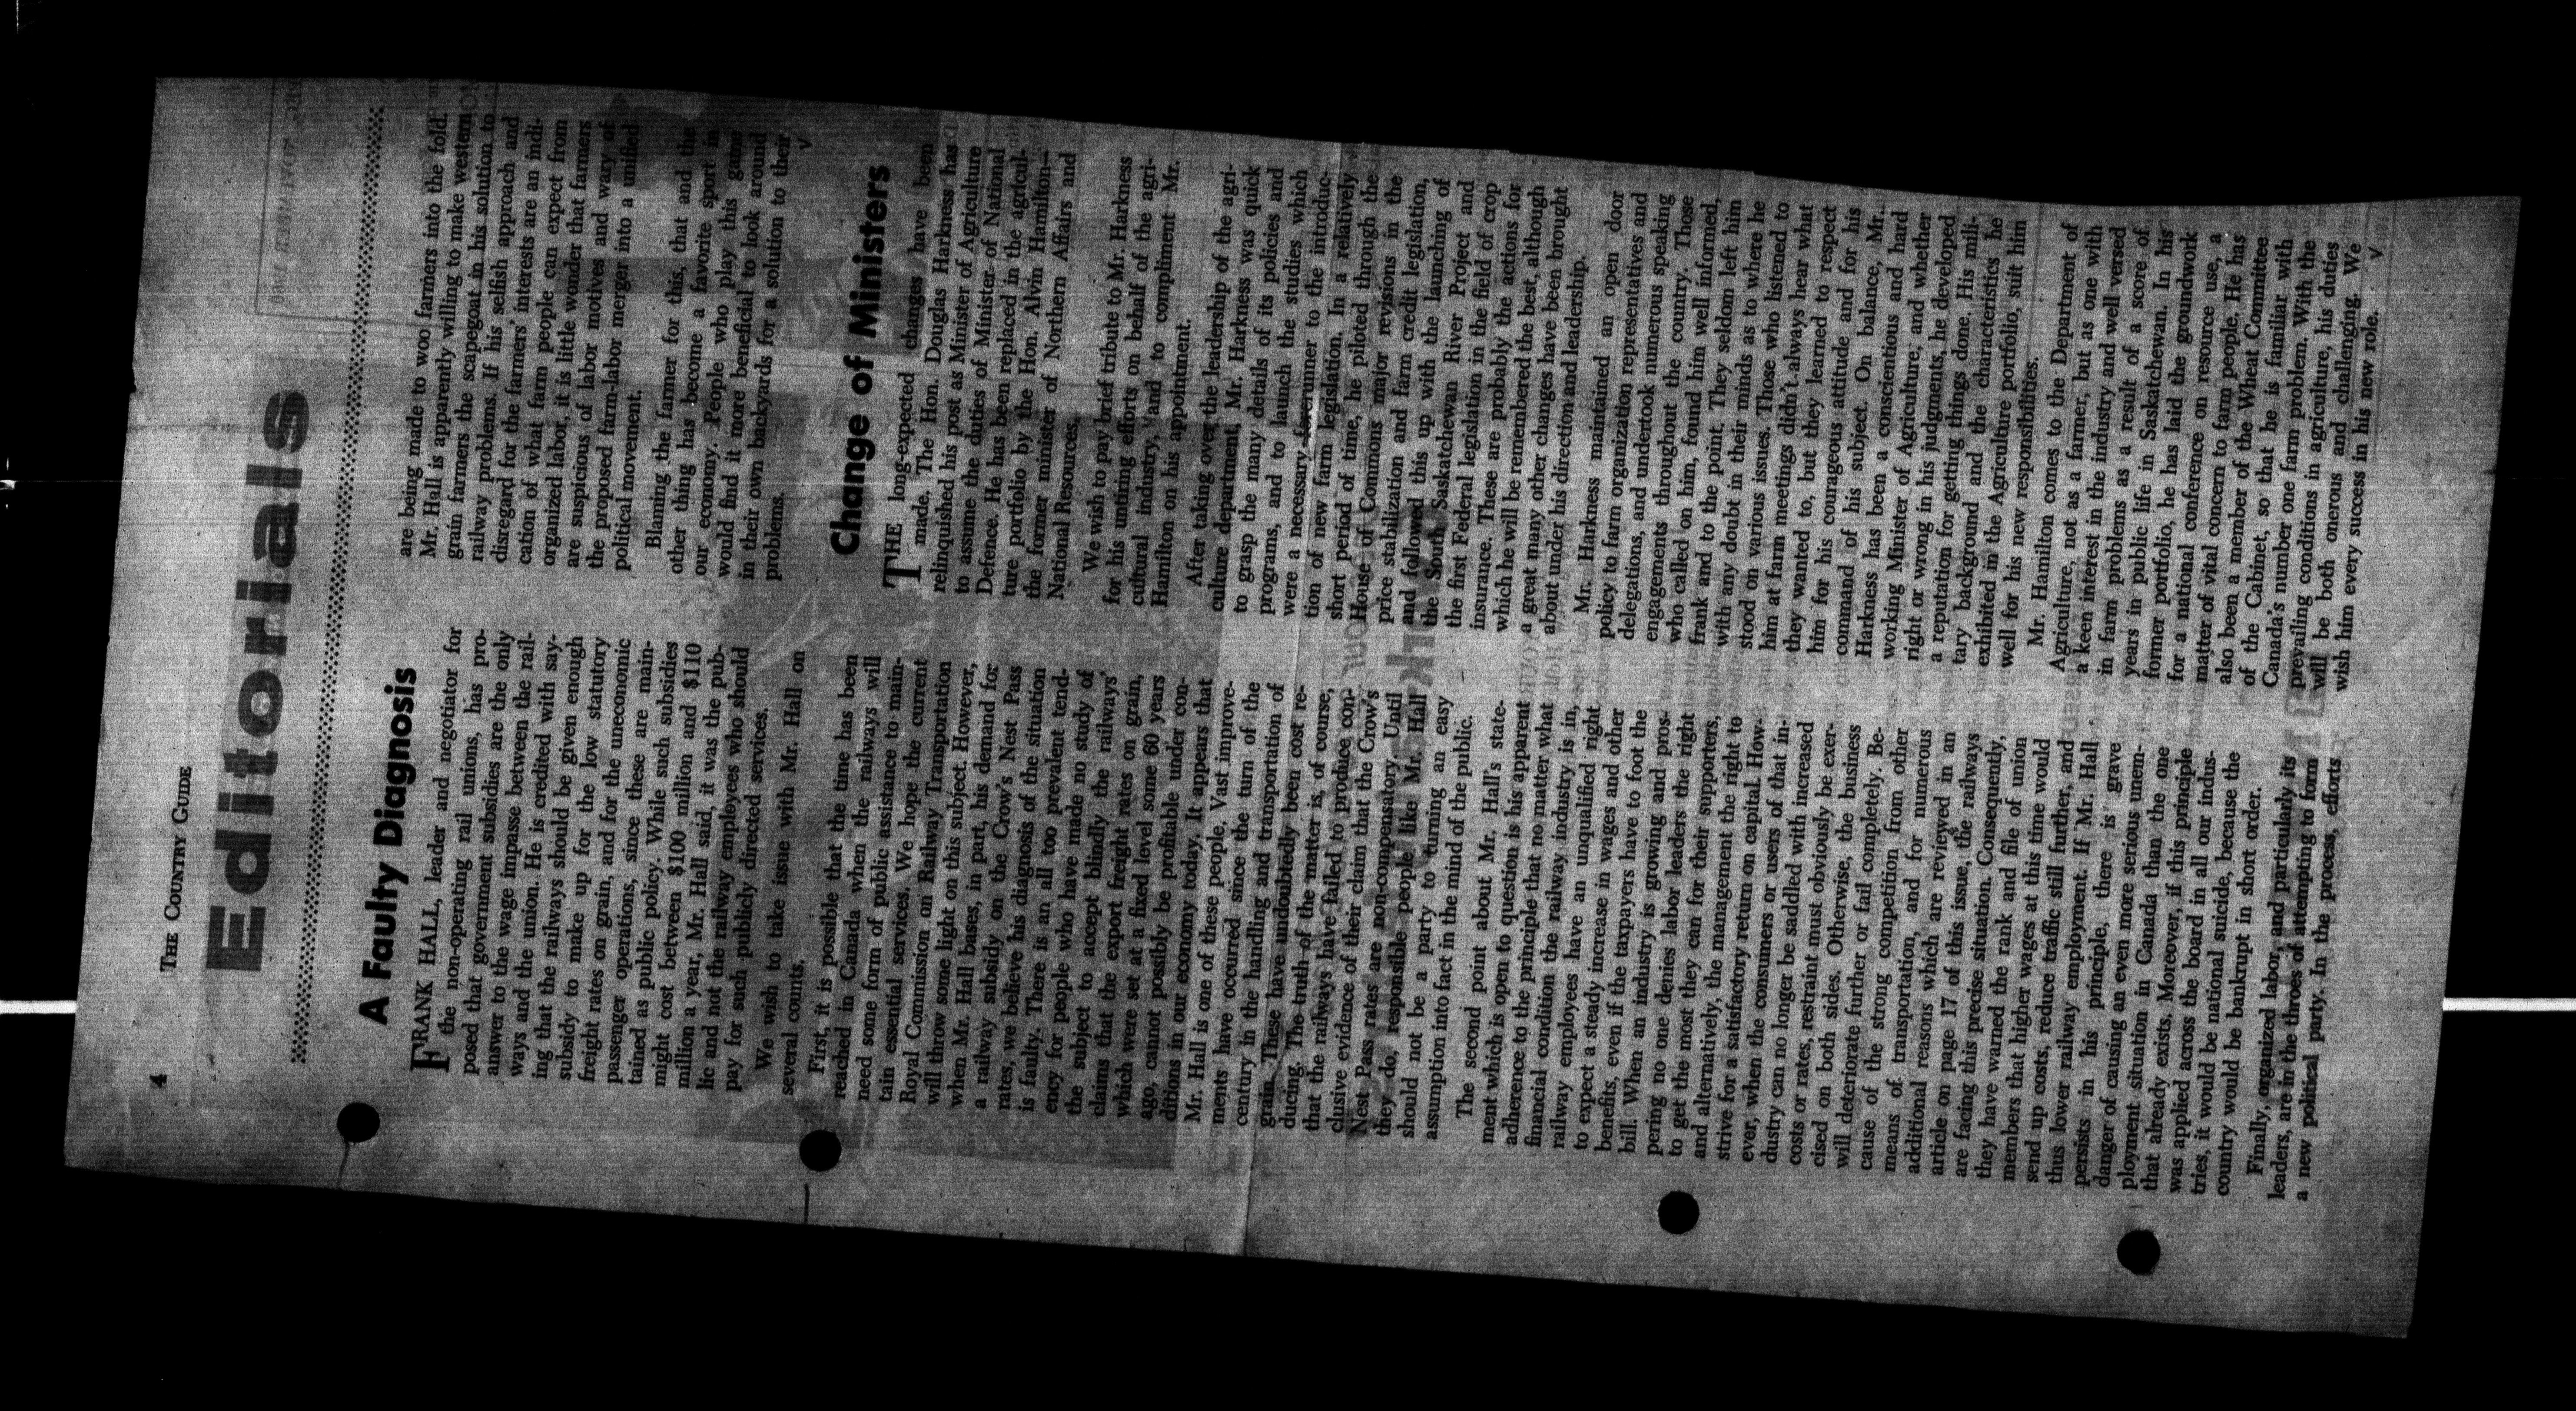 4
THE COUNTRY GUIDE
Editorials
A Faulty Diagnosis
FRANK HALL, leader and negotiator for
the non-operating rail unions, has pro-
posed that government subsidies are the only
answer to the wage impasse between the rail-
ways and the union. He is credited with say-
ing that the railways should be given enough
subsidy to make up for the low statutory
freight rates on grain, and for the uneconomic
passenger operations, since these are main-
tained as public policy. While such subsidies
might cost between $100 million and $110
million a year, Mr. Hall said, it was the pub-
lic and not the railway employees who should
pay for such publicly directed services.
We wish to take issue with Mr. Hall on
several counts.
First, it is possible that the time has been
reached in Canada when the railways will
need some form of public assistance to main-
tain essential services. We hope the current
Royal Commission on Railway Transportation
will throw some light on this subject. However,
when Mr. Hall bases, in part, his demand for
a railway subsidy on the Crow's Nest Pass
rates, we believe his diagnosis of the situation
is faulty. There is an all too prevalent tend-
ency for people who have made no study of
the subject to accept blindly the railways'
claims that the export freight rates on grain,
which were set at a fixed level some 60 years
ago, cannot possibly be profitable under con-
ditions in our economy today. It appears that
Mr. Hall is one of these people. Vast improve-
ments have occurred since the turn of the
century in the handling and transportation of
grain. These have undoubtedly been cost re-
ducing. The truth of the matter is, of course,
that the railways have failed to produce con-
clusive evidence of their claim that the Crow's
Nest Pass rates are non-compensatory. Until
they do, responsible people like Mr. Hall
should not be a party to turning an easy
assumption into fact in the mind of the public.
The second point about Mr. Hall's state-
ment which is open to question is his apparent
adherence to the principle that no matter what
financial condition the railway industry is in,
railway employees have an unqualified right
to expect a steady increase in wages and other
benefits, even if the taxpayers have to foot the
bill. When an industry is growing and pros-
pering no one denies labor leaders the right
to get the most they can for their supporters,
and alternatively, the management the right to
strive for a satisfactory return on capital. How-
ever, when the consumers or users of that in-
dustry can no longer be saddled with increased
costs or rates, restraint must obviously be exer-
cised on both sides. Otherwise, the business
will deteriorate further or fail completely. Be-
cause of the strong competition from other
means of transportation, and for numerous
additional reasons which are reviewed in an
article on page 17 of this issue, the railways
are facing this precise situation. Consequently,
they have warned the rank and file of union
members that higher wages at this time would
send up costs, reduce traffic still further, and
thus lower railway employment. If Mr. Hall
persists in his principle, there is grave
danger of causing an even more serious unem-
ployment situation in Canada than the one
that already exists. Moreover, if this principle
was applied across the board in all our indus-
tries, it would be national suicide, because the
country would be bankrupt in short order.
Finally, organized labor, and particularly its
leaders, are in the throes of attempting to form
a new political party. In the process, efforts
are being made to woo farmers into the fold.
Mr. Hall is apparently willing to make western
grain farmers the scapegoat in his solution to
railway problems. If his selfish approach and
disregard for the farmers' interests are an indi-
cation of what farm people can expect from
organized labor, it is little wonder that farmers
are suspicious of labor motives and wary of
the proposed farm-labor merger into a unified
political movement.
Blaming the farmer for this, that and the
other thing has become a favorite sport in
our economy. People who play this game
would find it more beneficial to look around
in their own backyards for a solution to their
problems. √
Change of Ministers
THE long-expected changes have been
made. The Hon. Douglas Harkness has
relinquished his post as Minister of Agriculture
to assume the duties of Minister of National
Defence. He has been replaced in the agricul-
ture portfolio by the Hon. Alvin Hamilton—
the former minister of Northern Affairs and
National Resources.
We wish to pay brief tribute to Mr. Harkness
for his untiring efforts on behalf of the agri-
cultural industry, and to compliment Mr.
Hamilton on his appointment.
After taking over the leadership of the agri-
culture department, Mr. Harkness was quick
to grasp the many details of its policies and
programs, and to launch the studies which
were a necessary forerunner to the introduc-
tion of new farm legislation. In a relatively
short period of time, he piloted through the
House of Commons major revisions in the
price stabilization and farm credit legislation,
and followed this up with the launching of
the South Saskatchewan River Project and
the first Federal legislation in the field of crop
insurance. These are probably the actions for
which he will be remembered the best, although
a great many other changes have been brought
about under his direction and leadership.
Mr. Harkness maintained an open door
policy to farm organization representatives and
delegations, and undertook numerous speaking
engagements throughout the country. Those
who called on him, found him well informed,
frank and to the point. They seldom left him
with any doubt in their minds as to where he
stood on various issues. Those who listened to
him at farm meetings didn't always hear what
they wanted to, but they learned to respect
him for his courageous attitude and for his
command of his subject. On balance, Mr.
Harkness has been a conscientious and hard
working Minister of Agriculture, and whether
right or wrong in his judgments, he developed
a reputation for getting things done. His mili-
tary background and the characteristics he
exhibited in the Agriculture portfolio, suit him
well for his new responsibilities.
Mr. Hamilton comes to the Department of
Agriculture, not as a farmer, but as one with
a keen interest in the industry and well versed
in farm problems as a result of a score of
years in public life in Saskatchewan. In his
former portfolio, he has laid the groundwork
for a national conference on resource use, a
matter of vital concern to farm people. He has
also been a member of the Wheat Committee
of the Cabinet, so that he is familiar with
Canada's number one farm problem. With the
prevailing conditions in agriculture, his duties
will be both onerous and challenging. We
wish him every success in his new role. √